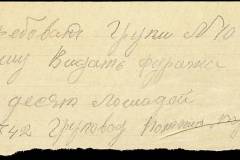 ебования Групи № 10
шу Видать фуража
десят Лошадей
42 Груповод